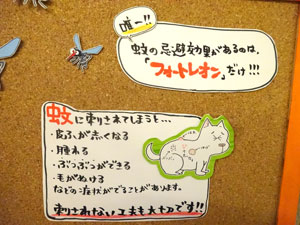 唯一!!
蚊の忌避効果があるのは、
「フォートレオン」だけ!!!
蚊に刺されてしまうと…
・皮ふが赤くなる
・腫れる
・ぶつぶつができる
・毛がぬける
などの症状がでることがあります。
刺されない工夫も大切です!!